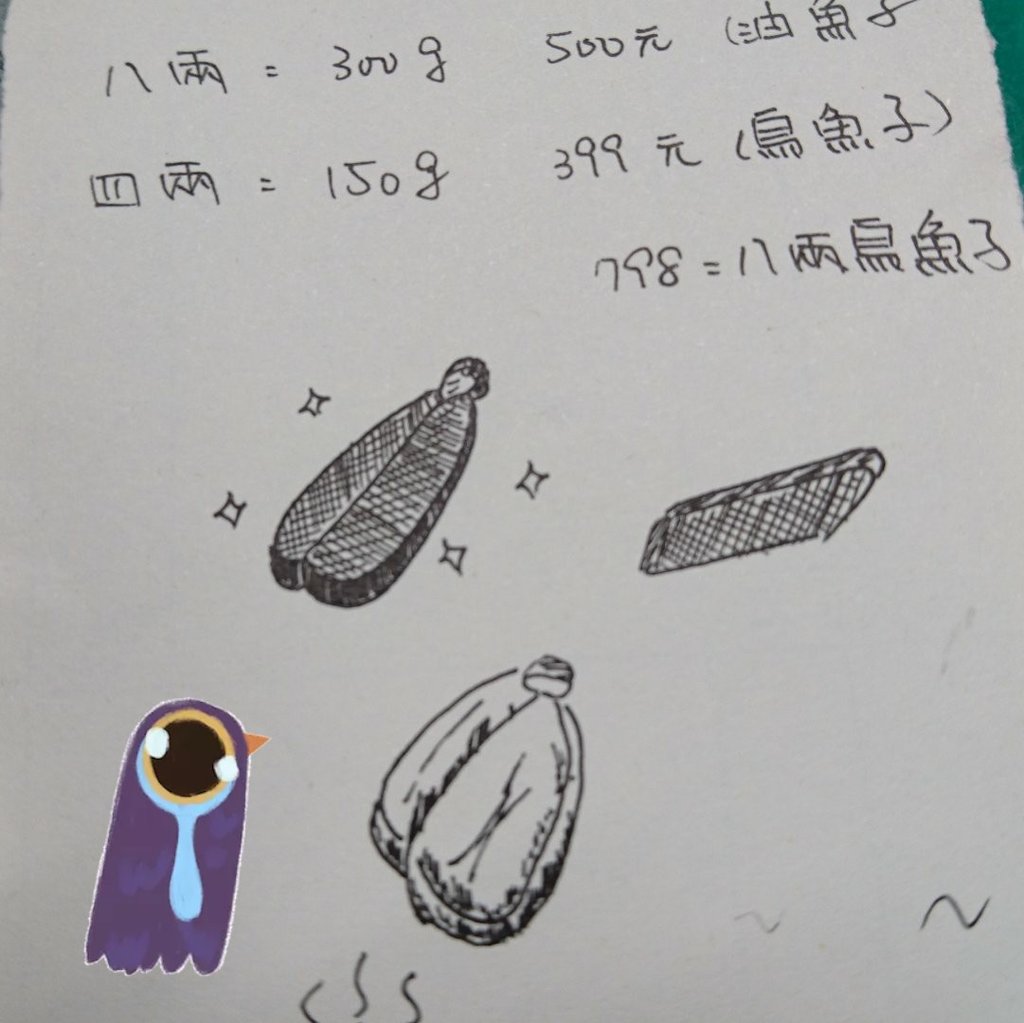 八兩 = 300g 500元 (油魚子
四兩 = 150g 399元 (烏魚子)
798 = 八兩烏魚子